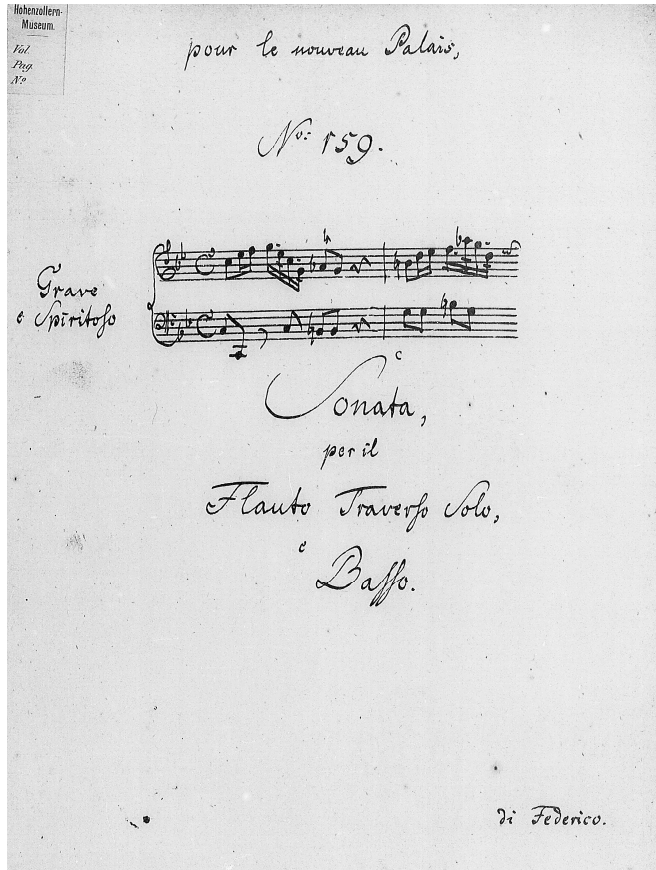 Hohenzollern-
Museum.
Vol.
Pag.
No
pour le nouveau Palais,
No: 159.
Grave
e Spiritoso
Sonata,
per il
Flauto Traverso Solo,
e
Basso.
di Federico.